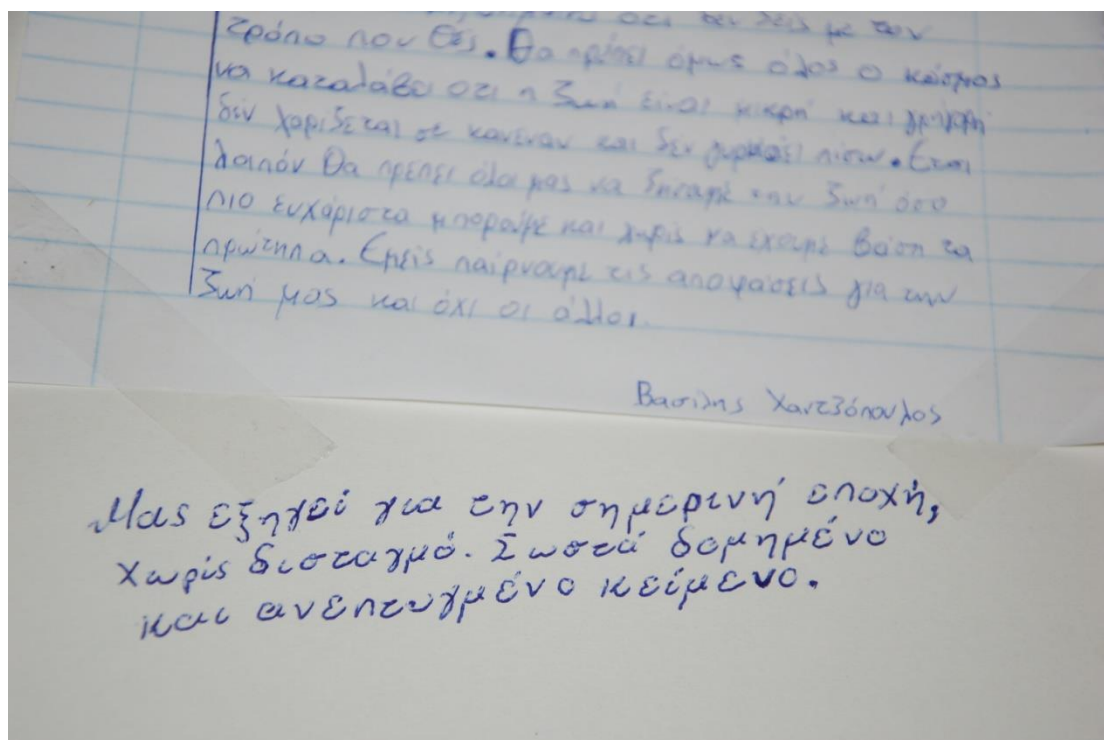 ότι δεν ζεις με τον
τρόπο που θες. Θα πρέπει όμως όλος ο κόσμος
να καταλάβει οτι η ζωή είναι μικρή και γρήγορη
δεν χαρίζεται σε κανέναν και δεν γυρνάει πίσω. Ετσι
λοιπόν θα πρέπει όλοι μας να ζήσουμε την ζωή όσο
πιο ευχάριστα μπορούμε και χωρίς να έχουμε βάση τα
πρώτυπα. Εμείς παίρνουμε τις αποφάσεις για την
ζωή μας και όχι οι άλλοι.
Βασιλης Χαντζόπουλος
Μας εξηγεί για την σημερινή εποχή,
χωρίς δισταγμό. Σωστά δομημένο
και ανεπτυγμένο κείμενο.